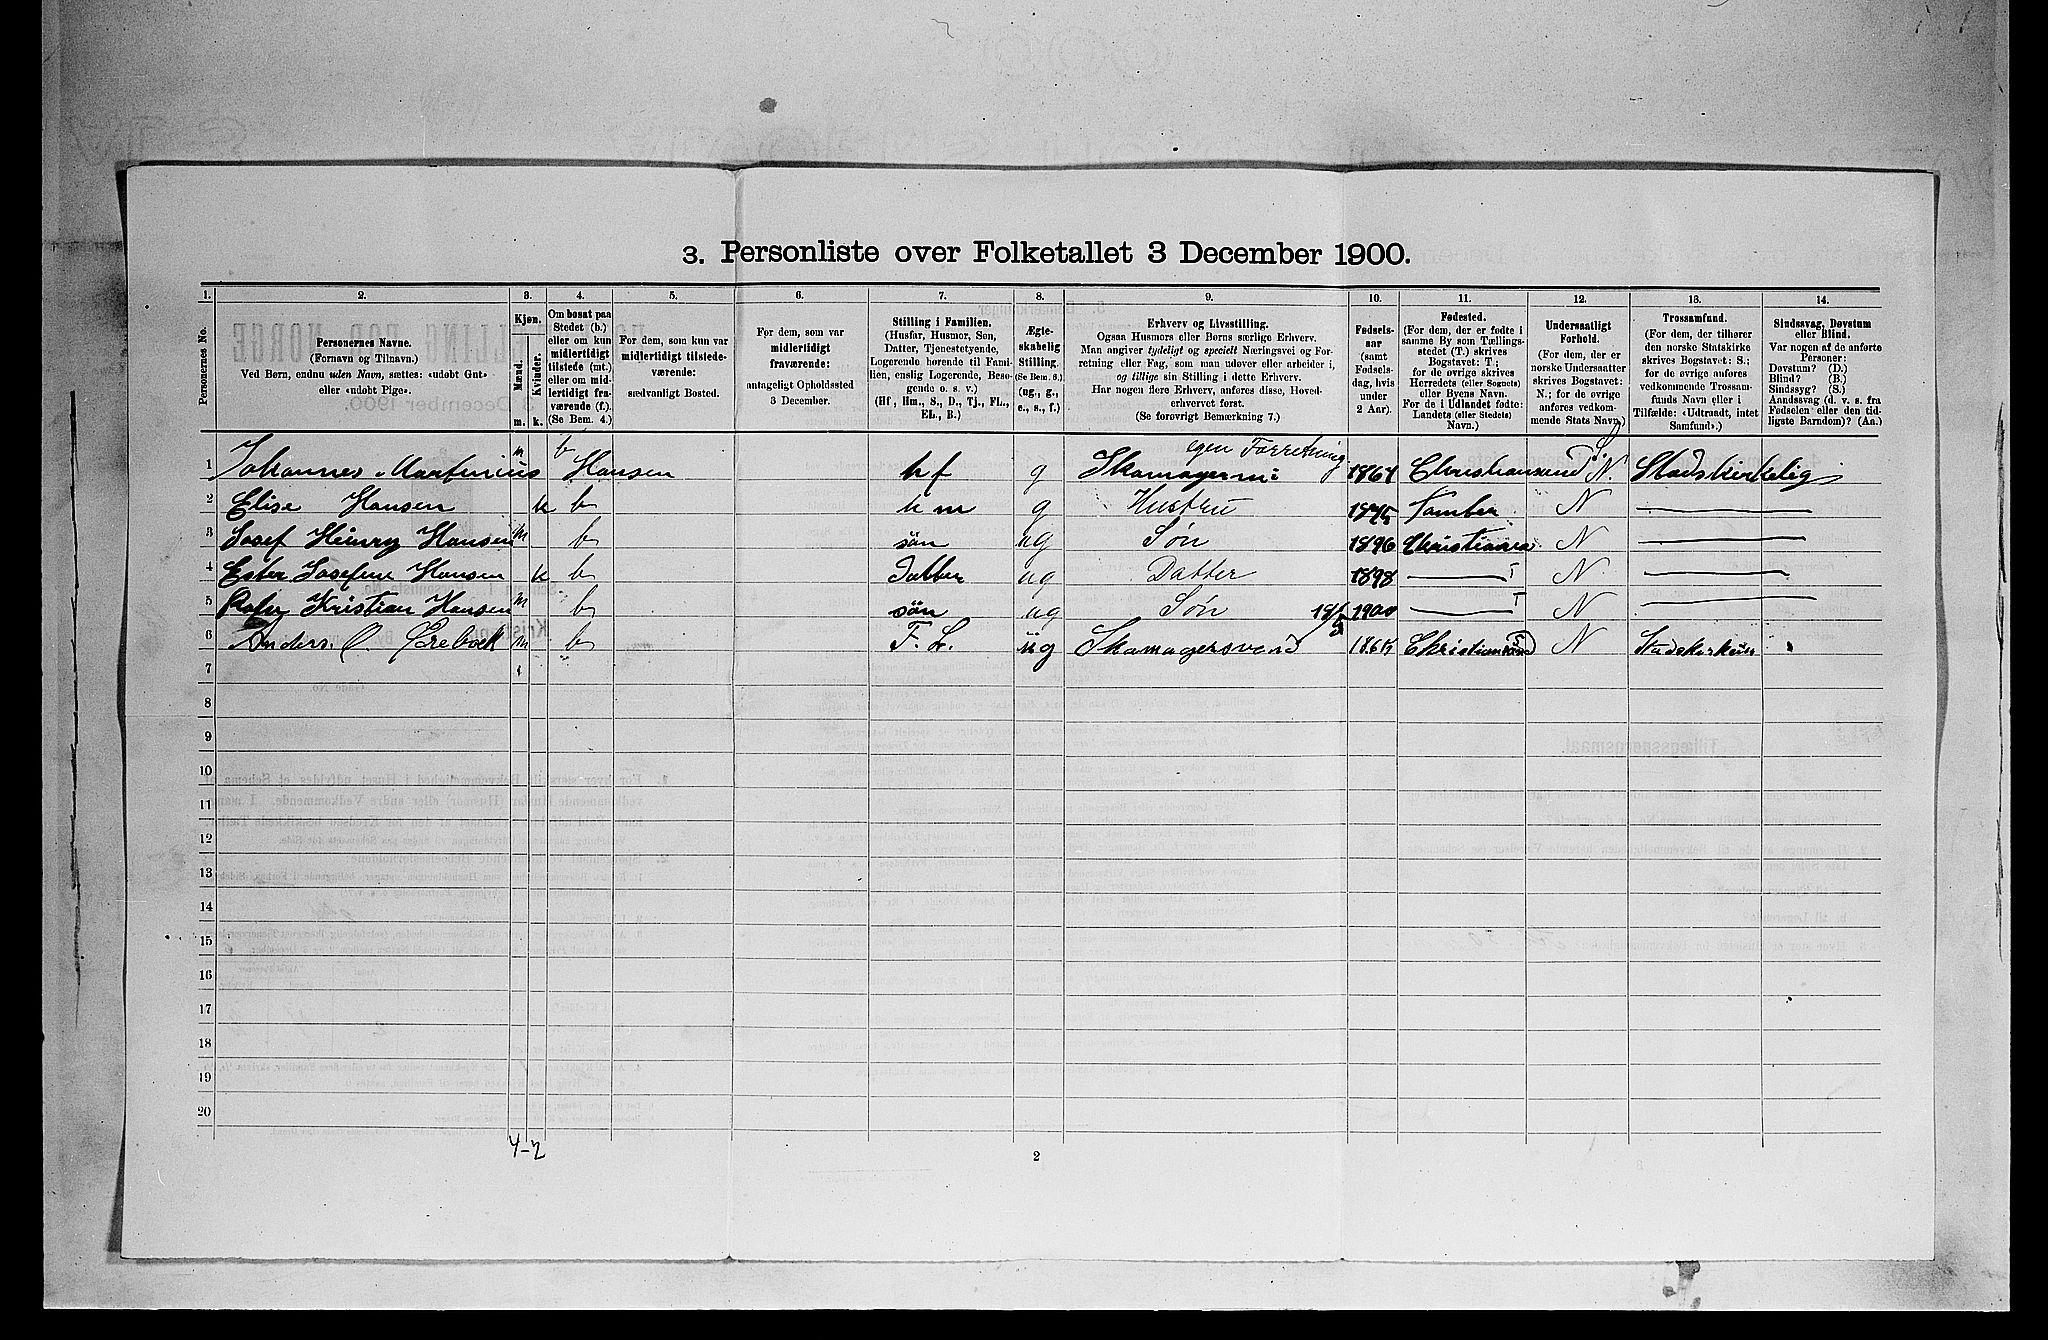 3. Personliste over Folketallet 3 December 1900.
1. 2. 3. 4. 5. 6. 7. 8. 9. 10. 11. 12. 13. 14.
Personernes No.
Personernes Navne.
(Fornavn og Tilnavn.)
Ved Børn, endnu uden Navn, sættes: «udøbt Gut»
eller «udøbt Pige».
Kjøn.
Mænd.
Kvinder.
m. k.
Om bosat paa
Stedet (b.)
eller om kun
midlertidigt
tilstede (mt.)
eller om mid-
lertidigt fra-
værende (f.).
(Se Bem. 4.)
For dem, som kun var
midlertidigt tilstede-
værende:
sædvanligt Bosted.
For dem, som var
midlertidigt
fraværende:
antageligt Opholdssted
3 December.
Stilling i Familien.
(Husfar, Husmor, Søn,
Datter, Tjenestetyende,
Logerende hørende til Fami-
lien, enslig Logerende, Besø-
gende o. s. v.)
(Hf., Hm., S., D., Tj., FL.,
EL., B.)
Ægte-
skabelig
Stilling.
(Se Bem. 6.)
(ug., g.,
e., s., f.)
Erhverv og Livsstilling.
Ogsaa Husmors eller Børns særlige Erhverv.
Man angiver tydeligt og specielt Næringsvei og For-
retning eller Fag, som man udøver eller arbeider i,
og tillige sin Stilling i dette Erhverv.
Har nogen flere Erhverv, anføres disse, Hoved-
erhvervet først.
(Se forøvrigt Bemærkning 7.)
Fødsels-
aar
(samt
Fødsels-
dag, hvis
under
2 Aar).
Fødested.
(For dem, der er fødte i
samme By som Tællings-
stedet (T.) skrives
Bogstavet: T ;
for de øvrige skrives
Herredets (eller Sognets)
eller Byens Navn.
For de i Udlandet fødte:
Landets (eller Stedets)
Navn.)
Undersaatligt
Forhold.
(For dem, der er
norske Undersaatter
skrives Bogstavet:
N.; for de øvrige
anføres vedkom-
mende Stats Navn.)
Trossamfund.
(For dem, der tilhører
den norske Statskirke
skrives Bogstavet: S.;
for de øvrige anføres
vedkommende Trossam-
funds Navn eller i
Tilfælde: «Udtraadt, intet
Samfund».)
Sindssvag, Døvstum
eller Blind.
Var nogen af de anførte
Personer:
Døvstum? (D.)
Blind? (B.)
Sindssyg? (S.)
Aandssvag (d. v. s. fra
Fødselen eller den tid-
ligste Barndom)? (Aa.)
1 Johannes Martinius Hansen m b hf g Skomagermi egen Forretning Christiansund N. Stadskirkelig
2 Elise Hansen k b hm g Hustru 1875 Vamber N
3 Josef Henry Hansen m b sön ug Søn 1896 Christiania N
4 Ester Josefine Hansen k b Datter ug Datter 1898 T N
5 Kristian Hansen m b sön ug Søn 1900 T N
6 Anders O. Ørebæk m b F. L. ug Skomagersvend Christiansund N
7
8
9
10
11
12
13
14
15
16
17
18
19
20
4-2
2